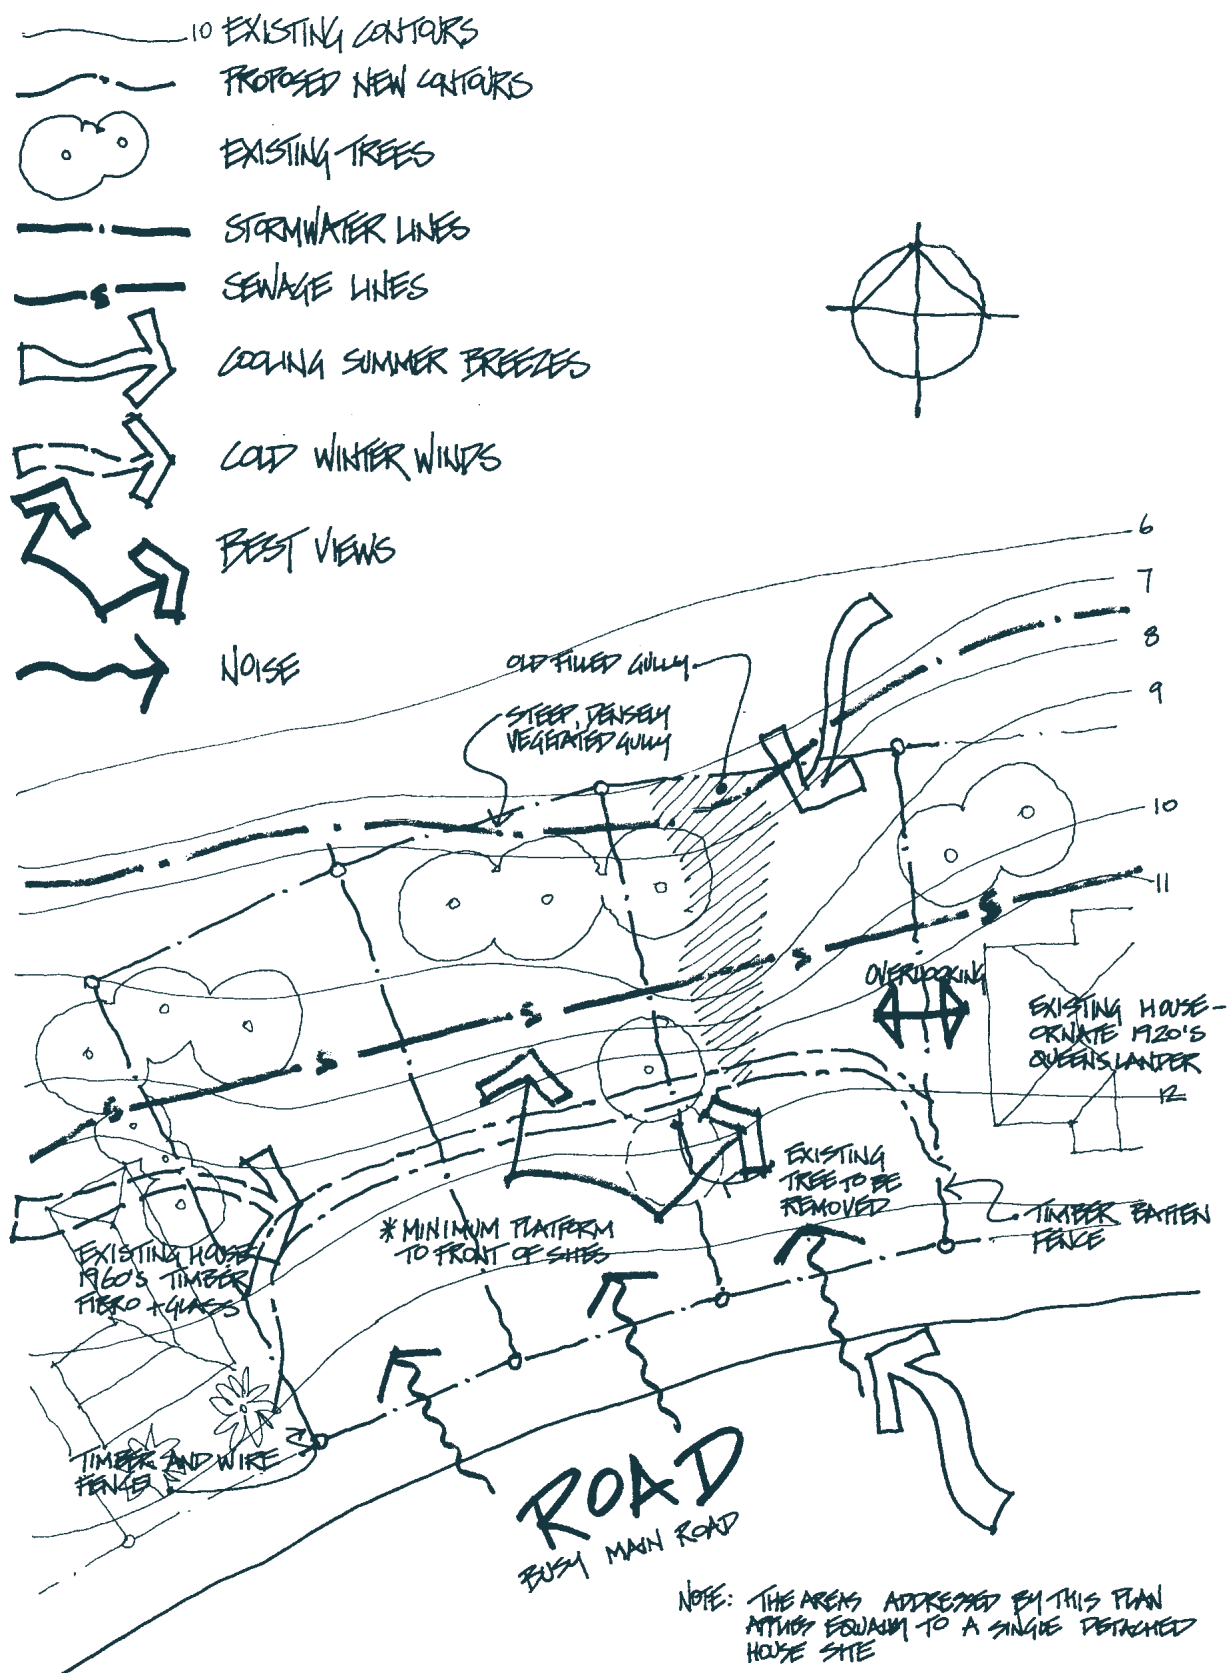 10 EXISTING CONTOURS
PROPOSED NEW CONTOURS
EXISTING TREES
STORMWATER LINES
S
SEWAGE LINES
COOLING SUMMER BREEZES
COLD WINTER WINDS
BEST VIEWS
NOISE
6
7
8
9
10
11
12
OLD FILLED GULLY
STEEP, DENSELY
VEGETATED GULLY
S
S
S
S
S
OVERLOOKING
EXISTING HOUSE -
ORNATE 1920'S
QUEENSLANDER
EXISTING
TREE TO BE
REMOVED
TIMBER BATTEN
FENCE
* MINIMUM PLATFORM
TO FRONT OF SITES
EXISTING HOUSE
1960'S TIMBER
FIBRO + GLASS
TIMBER AND WIRE
FENCE
ROAD
BUSY MAIN ROAD
NOTE: THE AREAS ADDRESSED BY THIS PLAN
APPLIES EQUALLY TO A SINGLE DETACHED
HOUSE SITE